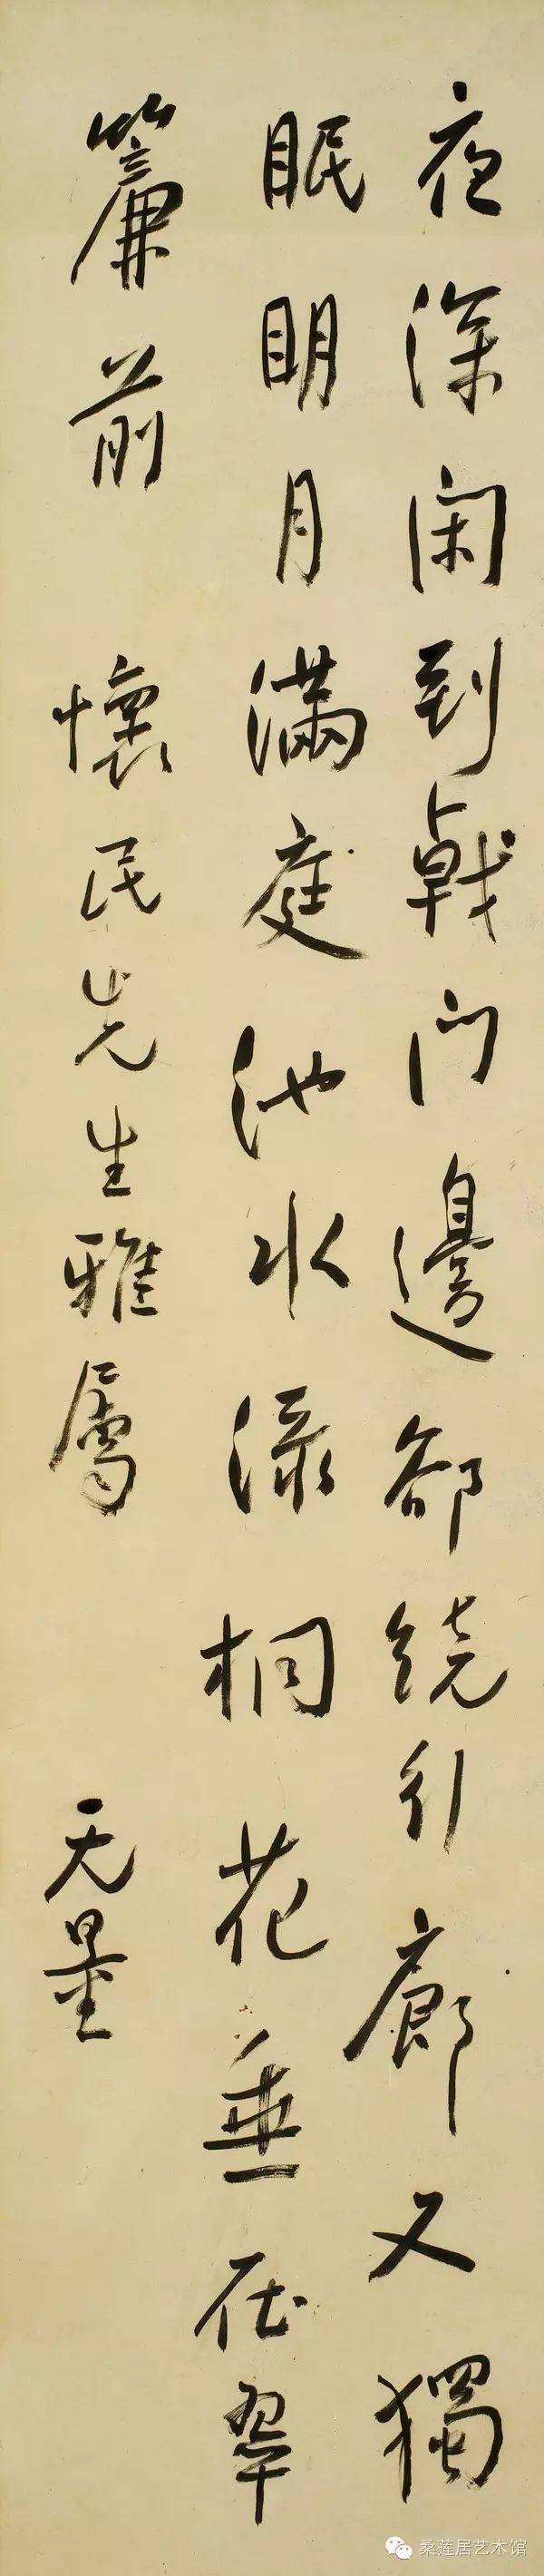 夜深闲到戟门邊卻绕行廊又獨
眠明月满庭池水渌桐花垂在翠
簾前
懷民先生雅属
无量
桑莲居艺术馆